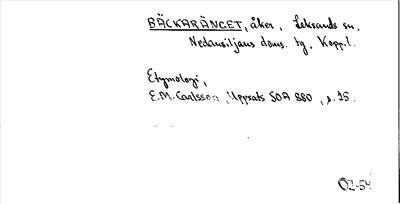 BÄCKARÄNGET, åker, Leksands sn.
Nedansiljans doms. tg. Kopp.l.
Etymologi,
E.M. Carlsson, Uppsats SOA 880, s. 15.
02-54